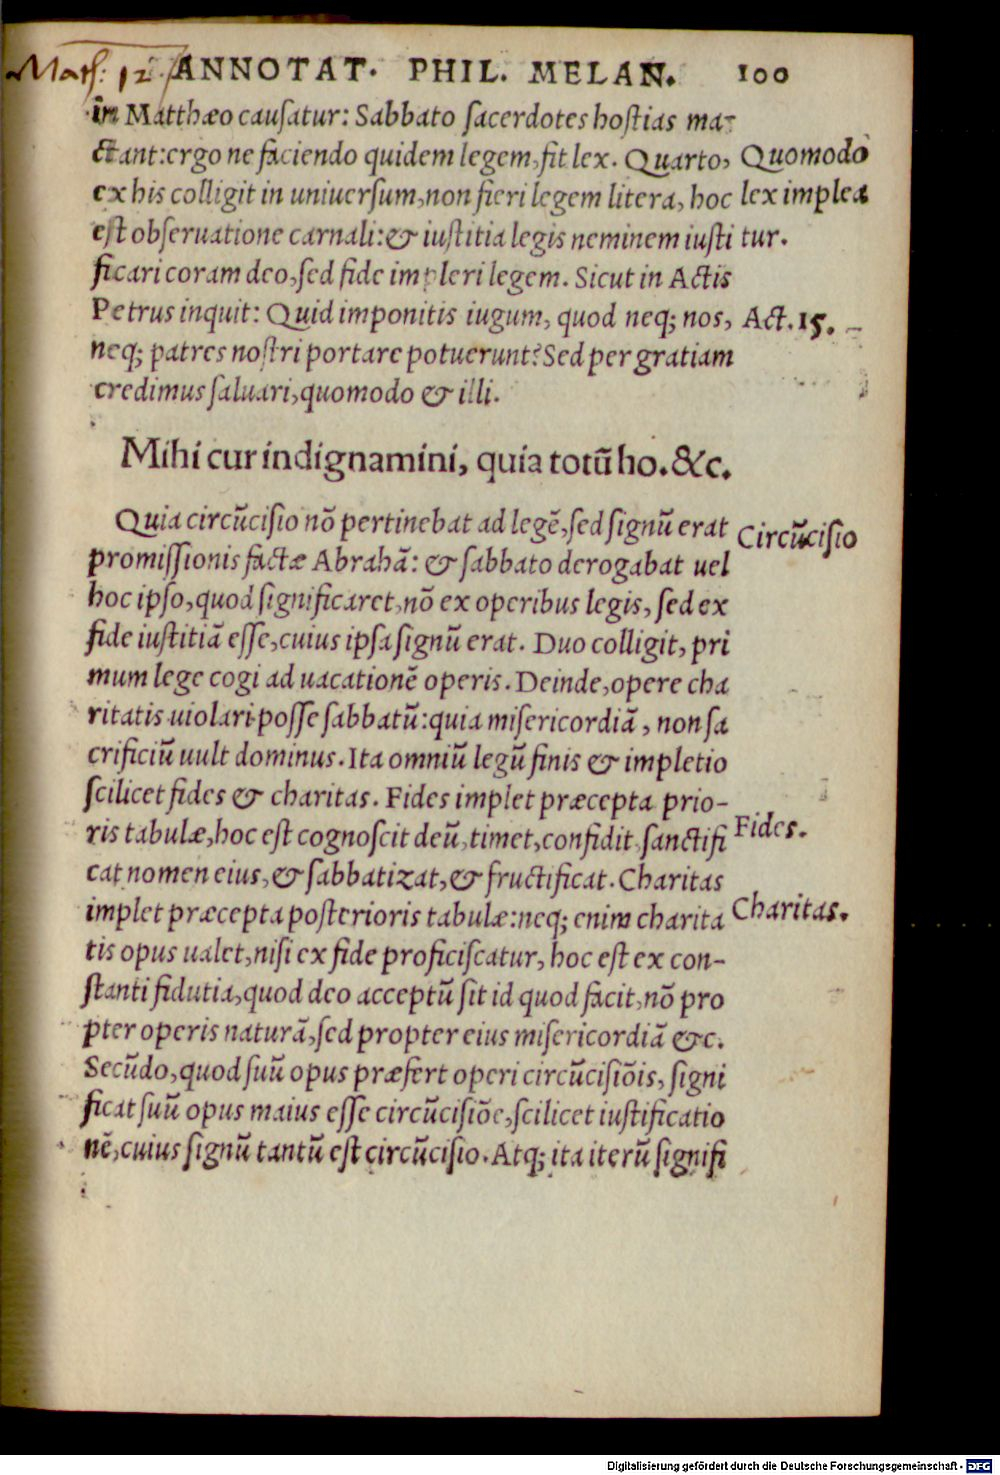 Math: 12.
ANNOTAT. PHIL. MELAN. 100
in Matthæo causatur: Sabbato sacerdotes hostias ma-
ctant: ergo ne faciendo quidem legem, fit lex. Quarto,
ex his colligit in uniuersum, non fieri legem litera, hoc
est obseruatione carnali: & iustitia legis neminem iusti
ficari coram deo, sed fide impleri legem. Sicut in Actis
Petrus inquit: Quid imponitis iugum, quod neq; nos,
neq; patres nostri portare potuerunt? Sed per gratiam
credimus saluari, quomodo & illi.
Quomodo
lex implea
tur.
Act. 15.
Mihi cur indignamini, quia totũ ho. &c.
Quia circũcisio nõ pertinebat ad legẽ, sed signũ erat
promissionis factæ Abrahã: & sabbato derogabat uel
hoc ipso, quod significaret, nõ ex operibus legis, sed ex
fide iustitiã esse, cuius ipsa signũ erat. Duo colligit, pri
mum lege cogi ad uacationẽ operis. Deinde, opere cha
ritatis uiolari posse sabbatũ: quia misericordiã, non sa
crificiũ uult dominus. Ita omniũ legũ finis & impletio
scilicet fides & charitas. Fides implet præcepta prio-
ris tabulæ, hoc est cognoscit deũ, timet, confidit, sanctifi
cat nomen eius, & sabbatizat, & fructificat. Charitas
implet præcepta posterioris tabulæ: neq; enim charita
tis opus ualet, nisi ex fide proficiscatur, hoc est ex con-
stanti fidutia, quod deo acceptũ sit id quod facit, nõ pro
pter operis naturã, sed propter eius misericordiã &c.
Secũdo, quod suũ opus præfert operi circũcisiõis, signi
ficat suũ opus maius esse circũcisiõe, scilicet iustificatio
nẽ, cuius signũ tantũ est circũcisio. Atq; ita iterũ signifi
Circũcisio
Fides.
Charitas.
Digitalisierung gefördert durch die Deutsche Forschungsgemeinschaft - DFG